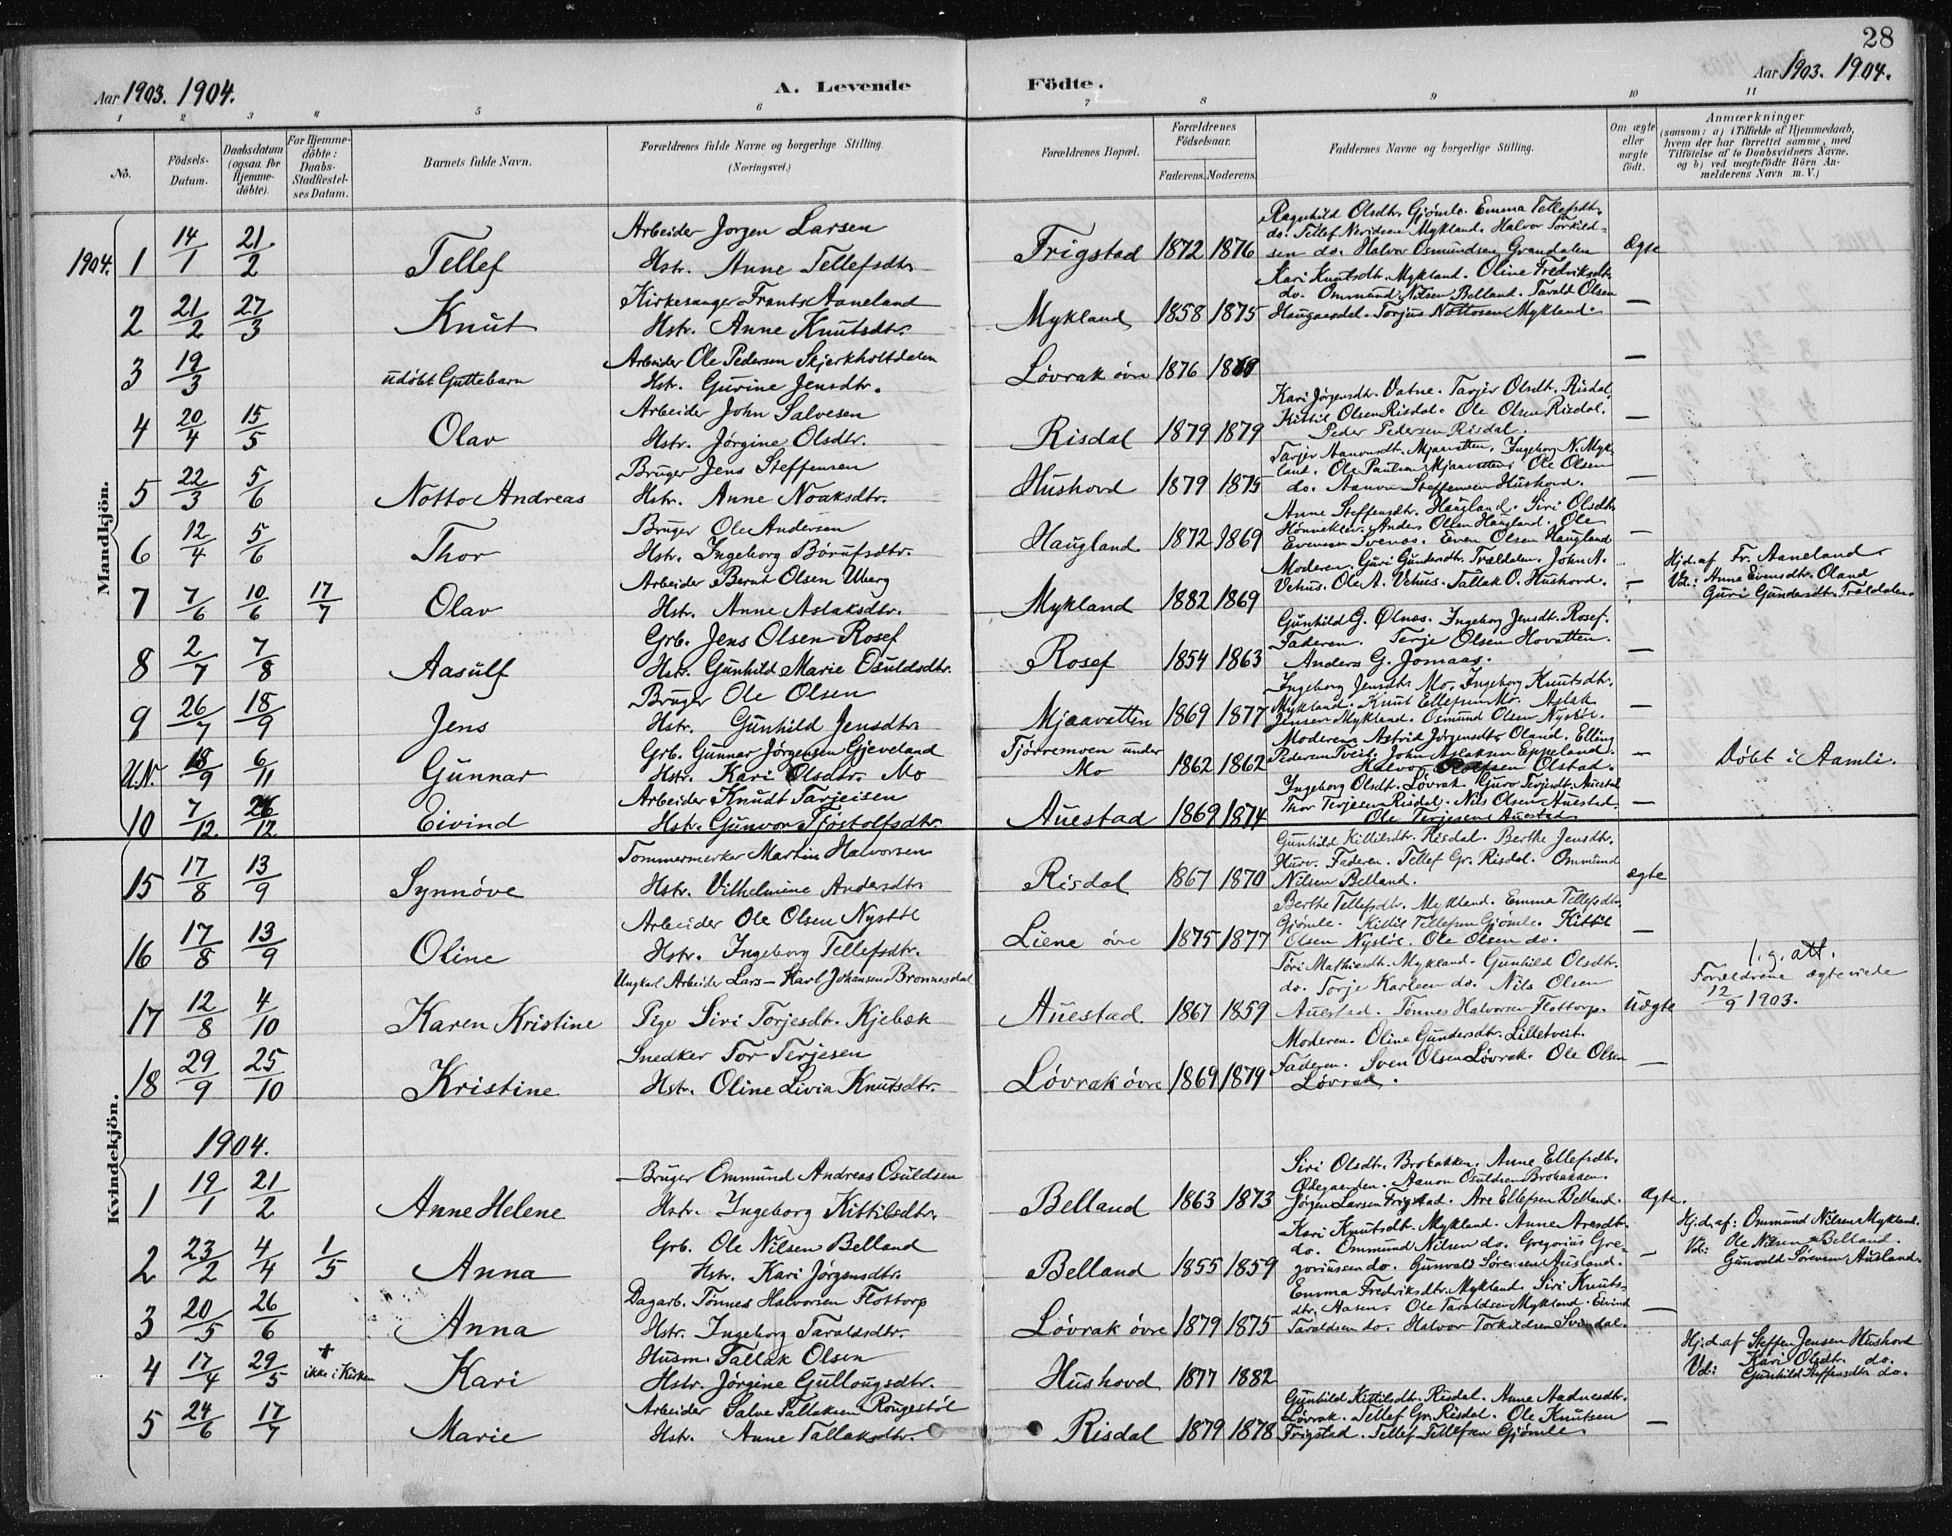 28
Aar 1903. 1904.
A. Levende
Födte.
Aar 1903. 1904.
1 2 3 4 5 6 7 8 9 10 11
No.
Födsels-Datum.
Daabsdatum (ogsaa for Hjemme-döbte).
For Hjemme-döbte: Daabs-Stadfæstel-ses Datum.
Barnets fulde Navn.
Forældrenes fulde Navne og borgerlige Stilling. (Næringsvei.)
Forældrenes Bopæl.
Forældrenes Födselsaar.
Faderens. Moderens.
Faddernes Navne og borgerlige Stilling.
Om ægte eller uægte födt.
Anmærkninger
(saasom: a) i Tilfælde af Hjemmedaab, hvem der har forrettet samme, med Tilföielse af to Daabsvidners Navne. og b) ved uægtefödte Börn An-melderens Navn m. V.)
Mandkjön.
1904. 1 14/1 21/2 Tellef
Arbeider Jörgen Larsen
Hstr. Anne Tellefsdtr.
Frigstad 1872 1876
Ragnhild Olsdtr. Gjömle. Emma Tellefsdtr.
do. Tellef Neridsen Mykland. Halvor Torkild-
sen do. Halvor Osmundsen Grandalen
Ægte
2 21/2 27/3 Knut
Kirkesanger Frants Aaneland
Hstr. Anne Knutsdtr.
Mykland 1858 1875
Kari Knutsdtr. Mykland. Oline Fredriksdtr.
do. Ommund Nilsen Belland. Tarald Olsen
Haugaasdal. Torjus Nottosen Mykland.
—
3 19/3 udöbt Guttebarn
Arbeider Ole Pedersen Skjerkholtdalen
Hstr. Gurine Jensdtr.
Lövrak övre 1876
—
4 20/4 15/5 Olav
Arbeider John Salvesen
Hstr. Jörgine Olsdtr.
Risdal 1879 1879
Kari Jörgensdtr. Vatne. Tarjer Olsdtr. Risdal.
Kittil Olsen Risdal. Ole Olsen Risdal.
Peder Pedersen Risdal.
—
5 22/3 5/6 Notto Andreas
Bruger Jens Steffensen
Hstr. Anne Noaksdtr.
Hushovd 1879 1875
Tarjer Aanonsdtr. Mjaavatten. Ingeborg N. Myk-
land. Ole Paulsen Mjaavatten. Ole Olsen
do. Aanon Steffensen Hushovd.
—
6 12/4 5/6 Thor
Bruger Ole Andersen
Hstr. Ingeborg Börufsdtr.
Haugland 1872 1869
Anne Steffensdtr. Haugland. Siri Olsdtr.
Hönneklev. Anders Olsen Haugland. Ole
Evensen Svenes. Even Olsen Haugland
—
7 7/6 10/6 17/7 Olav
Arbeider Bernt Olsen Uberg
Hstr. Anne Aslaksdtr.
Mykland 1882 1869
Moderen. Guri Gundersdtr. Trældalen. John A.
Vehus. Ole A. Vehus. Tallak O. Hushovd.
—
Hj.d. af Fr. Aaneland
Vd.: Anne Evensdtr. Oland
Guri Gundersdtr. Trældalen.
8 2/7 7/8 Aasulf
Grb. Jens Olsen Rosef
Hstr. Gunhild Marie Osuldsdtr.
Rosef 1854 1863
Gunhild G. Ølnes. Ingeborg Jensdtr. Rosef.
Faderen. Terje Olsen Hovatten.
Anders G. Jomaas.
—
9 26/7 18/9 Jens
Bruger Ole Olsen
Hstr. Gunhild Jensdtr.
Mjaavatten 1869 1877
Ingeborg Jensdtr. Mo. Ingeborg Knutsdtr.
Mykland. Knut Ellefsen Mo. Aslak
Jensen Mykland. Osmund Olsen Nystöl.
—
U.N. 18/9 6/11 Gunnar
Grb. Gunnar Jörgensen Gjeveland
Hstr. Kari Olsdtr. Mo
Tjörremoen under
Mo 1862 1862
Moderen. Astrid Jörgensdtr. Oland. Elling
Pedersen Tveit. John Aslaksen Eppeland.
Halvor Rolfsen Olstad.
—
Döbt i Aamli.
10 7/12 26/12 Eivind
Arbeider Knudt Tarjeisen
Hstr. Gunvor Tjöstolfsdtr.
Auestad 1869 1874
Ingeborg Olsdtr. Lövrak. Guro Terjesdtr. Auestad
Thor Terjesen Risdal. Nils Olsen Auestad.
Ole Terjesen Auestad
—
Kvindekjön.
15 17/8 13/9 Synnöve
Tommermerker Martin Halvorsen
Hstr. Vilhelmine Andersdtr.
Risdal 1867 1870
Gunhild Kittilsdtr. Risdal. Berthe Jensdtr.
Hurv. Faderen. Tellef Gr. Risdal. Ommund
Nilsen Belland.
ægte
16 17/8 13/9 Oline
Arbeider Ole Olsen Nystöl
Hstr. Ingeborg Tellefsdtr.
Liene övre 1875 1877
Berthe Tellefsdtr. Mykland. Emma Tellefsdtr.
Gjömle. Kittil Tellefsen Gjömle. Kittil
Olsen Nystöl. Ole Olsen do.
—
17 12/8 4/10 Karen Kristine
Ungkarl Arbeider Lars-Karl Johansen Bronnesdal
Pige Siri Torjesdtr. Kjebæk
Auestad 1867 1859
Töri Mathiesdtr. Mykland. Gunhild Olsdtr.
do. Torje Karlsen do. Nils Olsen
Auestad. Tönnes Halvorsen Flottorp.
Uægte
l. g. att.
Forældrene ægteviede
12/9 1903.
18 29/9 25/10 Kristine
Snedker Tor Terjesen
Hstr. Oline Livia Knutsdtr.
Lövrak övre 1869 1879
Moderen. Oline Gundersdtr. Lilletveit.
Faderen. Sven Olsen Lövrak. Ole Olsen
Lövrak.
—
1904.
1 19/1 21/2 Anne Helene
Bruger Ommund Andreas Osuldsen
Hstr. Ingeborg Kittilsdtr.
Belland 1863 1873
Siri Olsdtr. Brobakken. Anne Ellefsdtr.
Ødegaarden. Aanon Osuldsen Brobakken.
Jörgen Larsen Frigstad. Are Ellefsen Belland.
Ægte.
2 23/2 4/4 1/5 Anna
Grb. Ole Nilsen Belland
Hstr. Kari Jörgensdtr.
Belland 1855 1859
Kari Knutsdtr. Mykland. Anne Aresdtr.
do. Ommund Nilsen do. Gregorius Gre-
goriusen do. Gunvald Sörensen Ausland.
—
Hj.d. af: Ommund Nilsen Mykland.
Vd: Ole Nilsen Belland.
Gunvald Sörensen Ausland.
3 20/5 26/6 Anna
Dagarb. Tönnes Halvorsen Flottorp
Hstr. Ingeborg Taraldsdtr.
Lövrak övre 1879 1875
Emma Fredriksdtr. Mykland. Siri Knuts-
dtr. Aasen. Ole Taraldsen Mykland. Eivind
Taraldsen do. Halvor Torkildsen Svendal.
—
4 17/4 29/5 + ikke i Kirken Kari
Husm. Tallak Olsen
Hstr. Jörgine Gullougsdtr.
Hushovd 1877 1882
Hj.d. af Steffen Jensen Hushovd
Vd: Kari Olsdtr. do.
Gunhild Steffensdtr. do.
5 24/6 17/7 Marie
Arbeider Salve Tallaksen Rougestöl
Hstr. Anne Tallaksdtr.
Risdal 1879 1878
Gunhild Kittilsdtr. Risdal. Anne Aadnesdtr.
Lövrak. Tellef Gr. Risdal. Ole Knutsen
Frigstad. Tellef Tellefsen Gjömle.
—